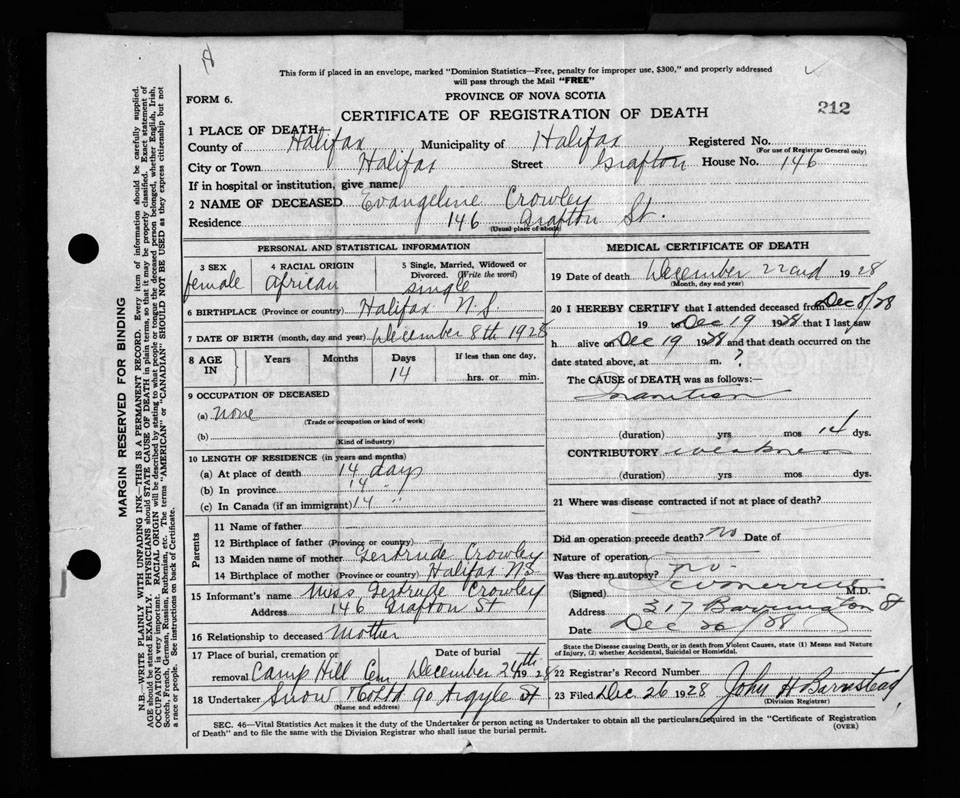 This form if placed in an envelope, marked "Dominion Statistics—Free, penalty for improper use, $300," and properly addressed
will pass through the Mail "FREE"
PROVINCE OF NOVA SCOTIA
FORM 6.
212
CERTIFICATE OF REGISTRATION OF DEATH
1 PLACE OF DEATH
County of Halifax Municipality of Halifax Registered No.
(For use of Registrar General only)
City or Town Halifax Street Grafton House No. 146
If in hospital or institution, give name
2 NAME OF DECEASED Evangeline Crowley
Residence 146 Grafton St.
(Usual place of abode)
PERSONAL AND STATISTICAL INFORMATION
3 SEX
female
4 RACIAL ORIGIN
African
5 Single, Married, Widowed or
Divorced. (Write the word)
single
6 BIRTHPLACE (Province or country) Halifax N.S.
7 DATE OF BIRTH (month, day and year) December 8th 1928
8 AGE IN
Years Months Days If less than one day,
14 hrs. or min.
9 OCCUPATION OF DECEASED
(a) None
(Trade or occupation or kind of work)
(b)
(Kind of industry)
10 LENGTH OF RESIDENCE (in years and months)
(a) At place of death 14 days
(b) In province 14 "
(c) In Canada (if an immigrant) 14 "
Parents
11 Name of father
12 Birthplace of father (Province or country)
13 Maiden name of mother Gertrude Crowley
14 Birthplace of mother (Province or country) Halifax NS
15 Informant's name Miss Gertrude Crowley
Address 146 Grafton St
16 Relationship to deceased Mother
17 Place of burial, cremation or
removal Camp Hill Cem
Date of burial
December 24th 1928
18 Undertaker Snow & Co Ltd 90 Argyle St
(Name and address)
MEDICAL CERTIFICATE OF DEATH
19 Date of death December 22nd 1928
(Month, day and year)
20 I HEREBY CERTIFY that I attended deceased from Dec 8/28
19 to Dec 19 1928 that I last saw
h alive on Dec 19 1928 and that death occurred on the
date stated above, at m. ?
The CAUSE of DEATH was as follows:—
Inanition
(duration) yrs mos 14 dys.
CONTRIBUTORY weakness
(duration) yrs mos dys.
21 Where was disease contracted if not at place of death?
Did an operation precede death? no Date of
Nature of operation
Was there an autopsy? no
(Signed) M.D.
Address 317 Barrington St
Date Dec 26/28
State the Disease causing Death, or in death from Violent Causes, state (1) Means and Nature
of Injury, (2) whether Accidental, Suicidal or Homicidal.
22 Registrar's Record Number
23 Filed Dec 26 1928 John H Barnstead
(Division Registrar)
SEC. 46—Vital Statistics Act makes it the duty of the Undertaker or person acting as Undertaker to obtain all the particulars required in the "Certificate of Registration
of Death" and to file the same with the Division Registrar who shall issue the burial permit.
(OVER)
MARGIN RESERVED FOR BINDING
N.B.—WRITE PLAINLY WITH UNFADING INK—THIS IS A PERMANENT RECORD. Every item of information should be carefully supplied.
AGE should be stated EXACTLY. PHYSICIANS should STATE CAUSE OF DEATH in plain terms, so that it may be properly classified. Exact statement of
OCCUPATION is very important. RACIAL ORIGIN will be described by stating to what people or tongue the deceased person belonged, whether English, Irish,
Scotch, French, German, Russian, Ruthenian, etc. The terms "AMERICAN" or "CANADIAN" SHOULD NOT BE USED as they express citizenship but not
a race or people. See instructions on back of Certificate.